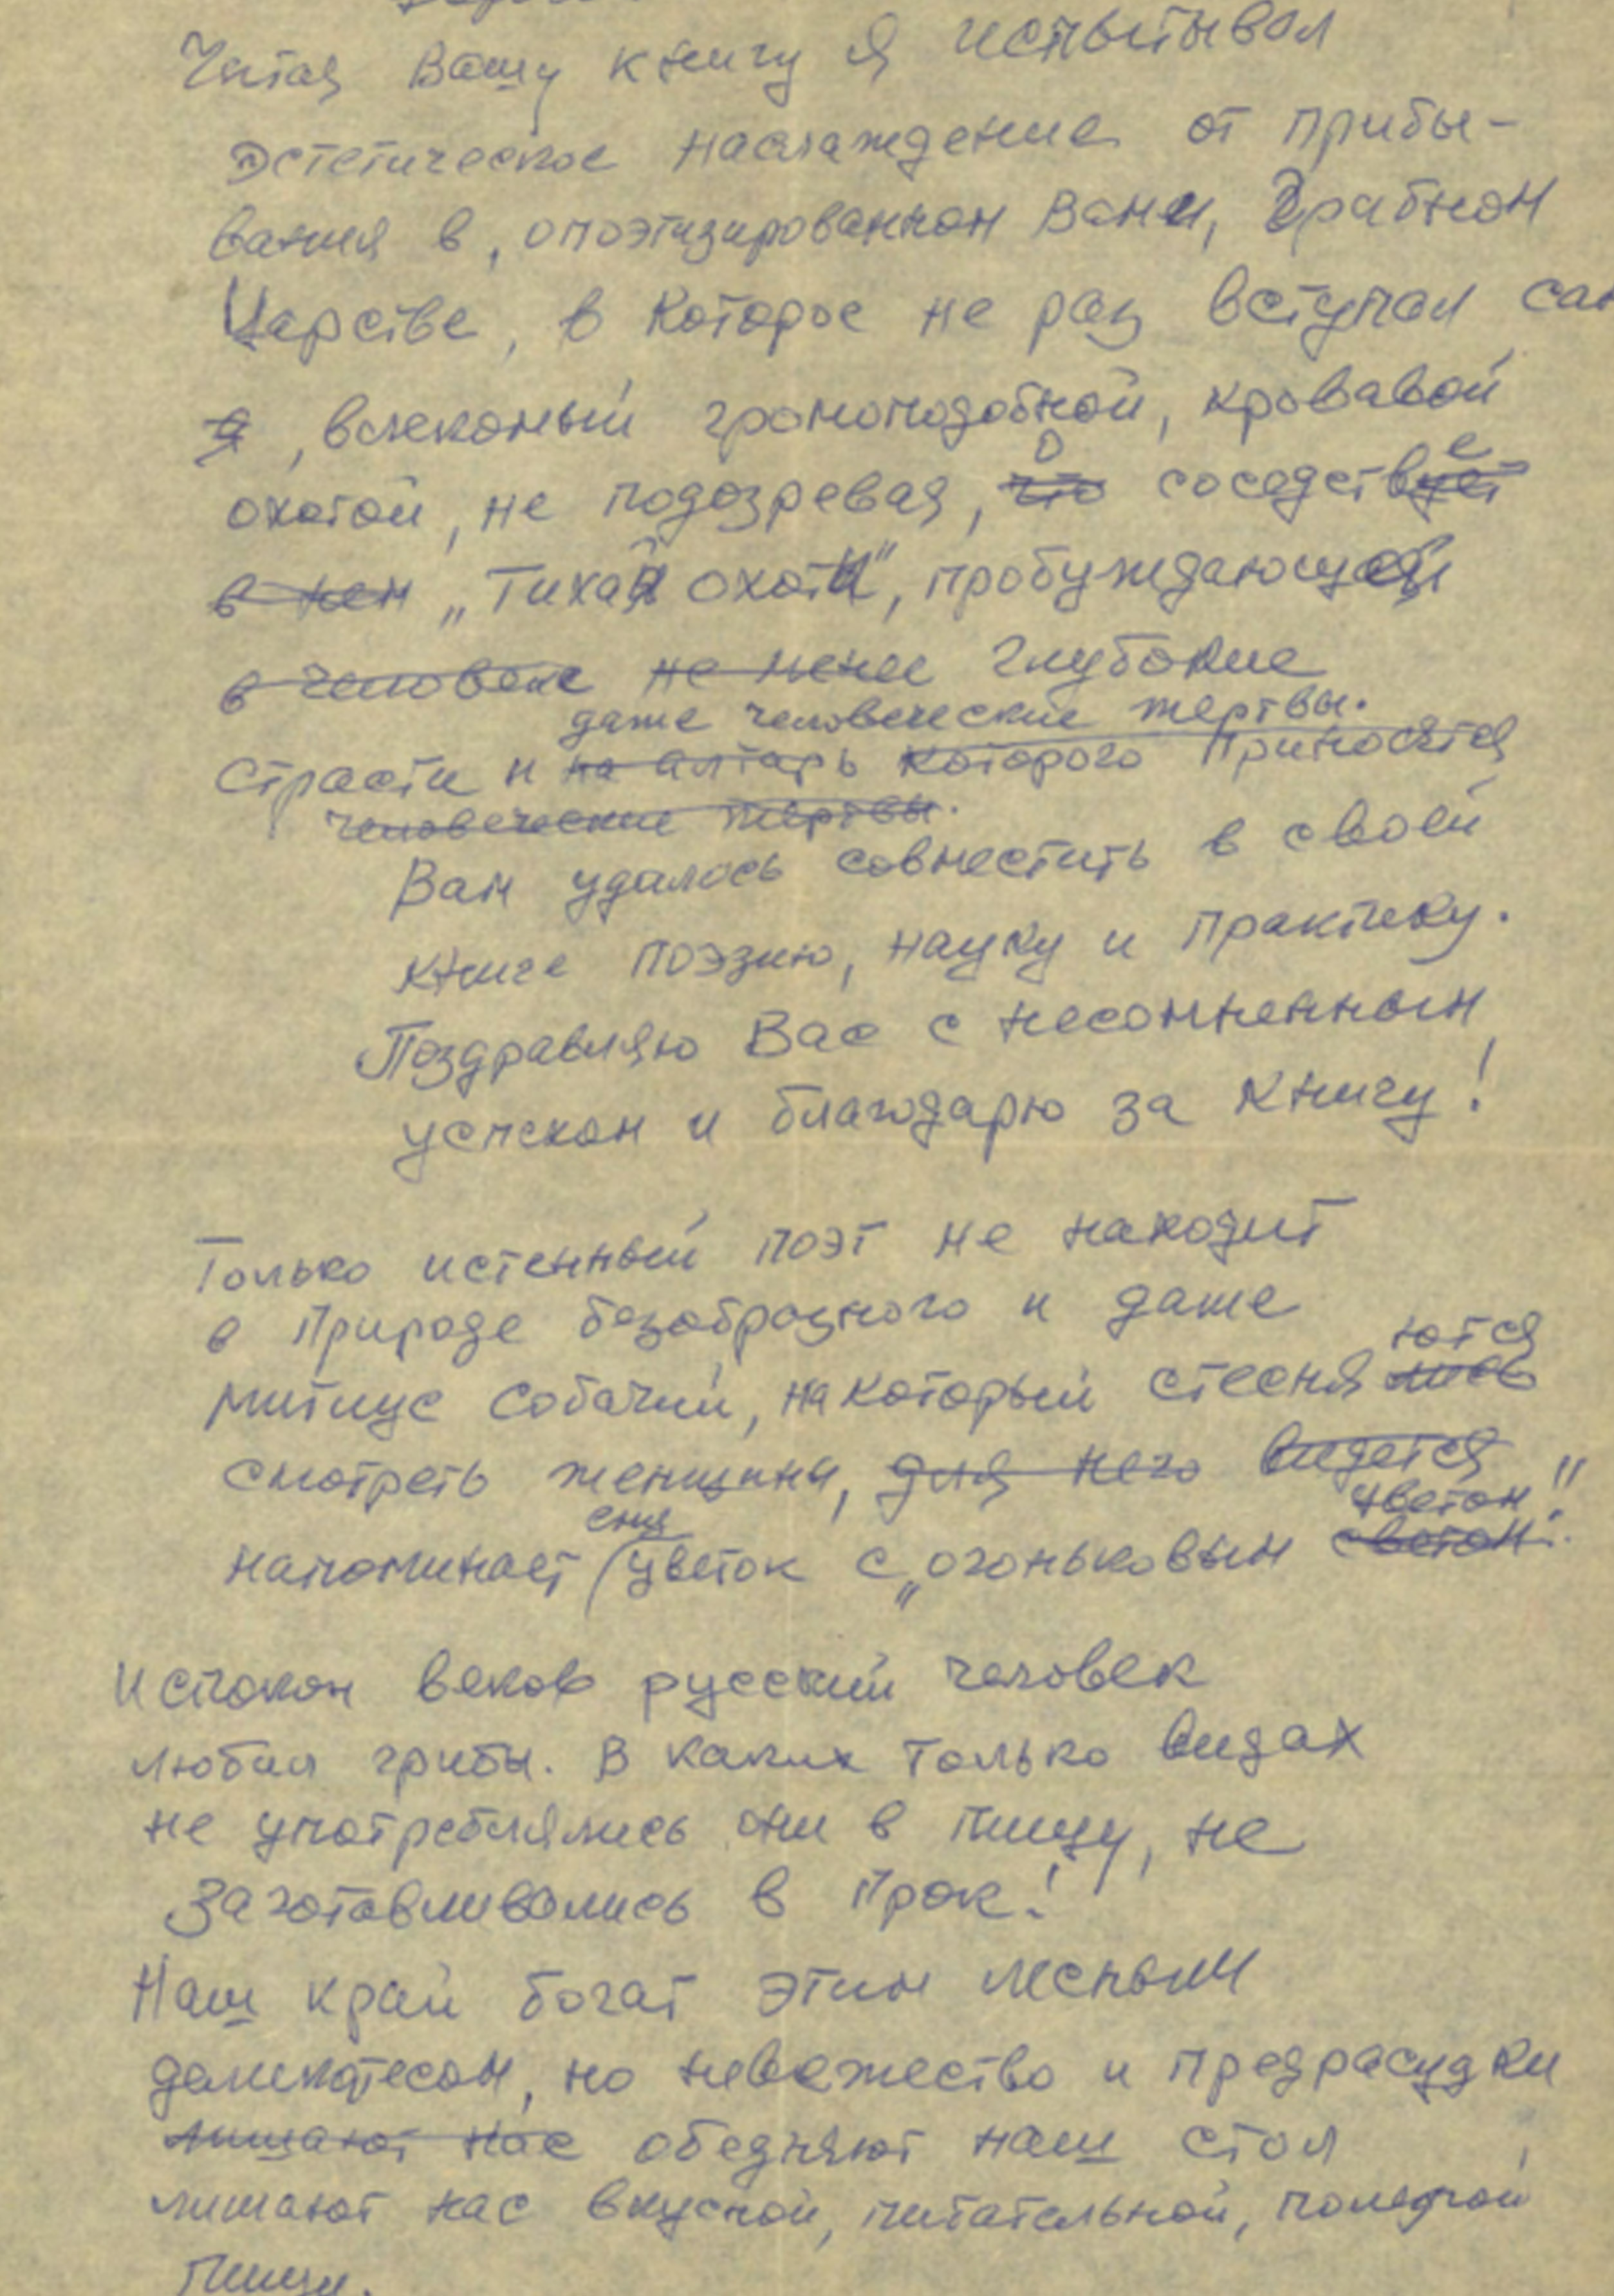 Читая Вашу книгу я испытывал
эстетическое наслаждение от прибы-
вания в, опоэтизированном Вами, Грибном
Царстве, в которое не раз вступал сам
я, влекомый громоподобной, кровавой
охотой, не подозревая, что о соседствует е
в нем „Тихой охоты", пробуждающей
в человеке не менее глубокие
даже человеческие жертвы.
страсти и на алтарь которого приносятся
человеческие жертвы.
Вам удалось совместить в своей
книге поэзию, науку и практику.
Поздравляю Вас с несомненным
успехом и благодарю за книгу!
Только истенный поэт не находит
в природе безобразного и даже
ются
митинус собачий, на который стеснялись
смотреть женщины, для него видется
ему цветом"!
напоминает (цветок с „огоньковым светом".
Испокон веков русский человек
любил грибы. В каких только видах
не употреблялись они в пищу, не
заготавливались в прок!
Наш край богат этим лесным
деликатесом, но невежество и предрасудки
лишают нас обедняют наш стол,
лишают нас вкусной, питательной, полезной
пищи.